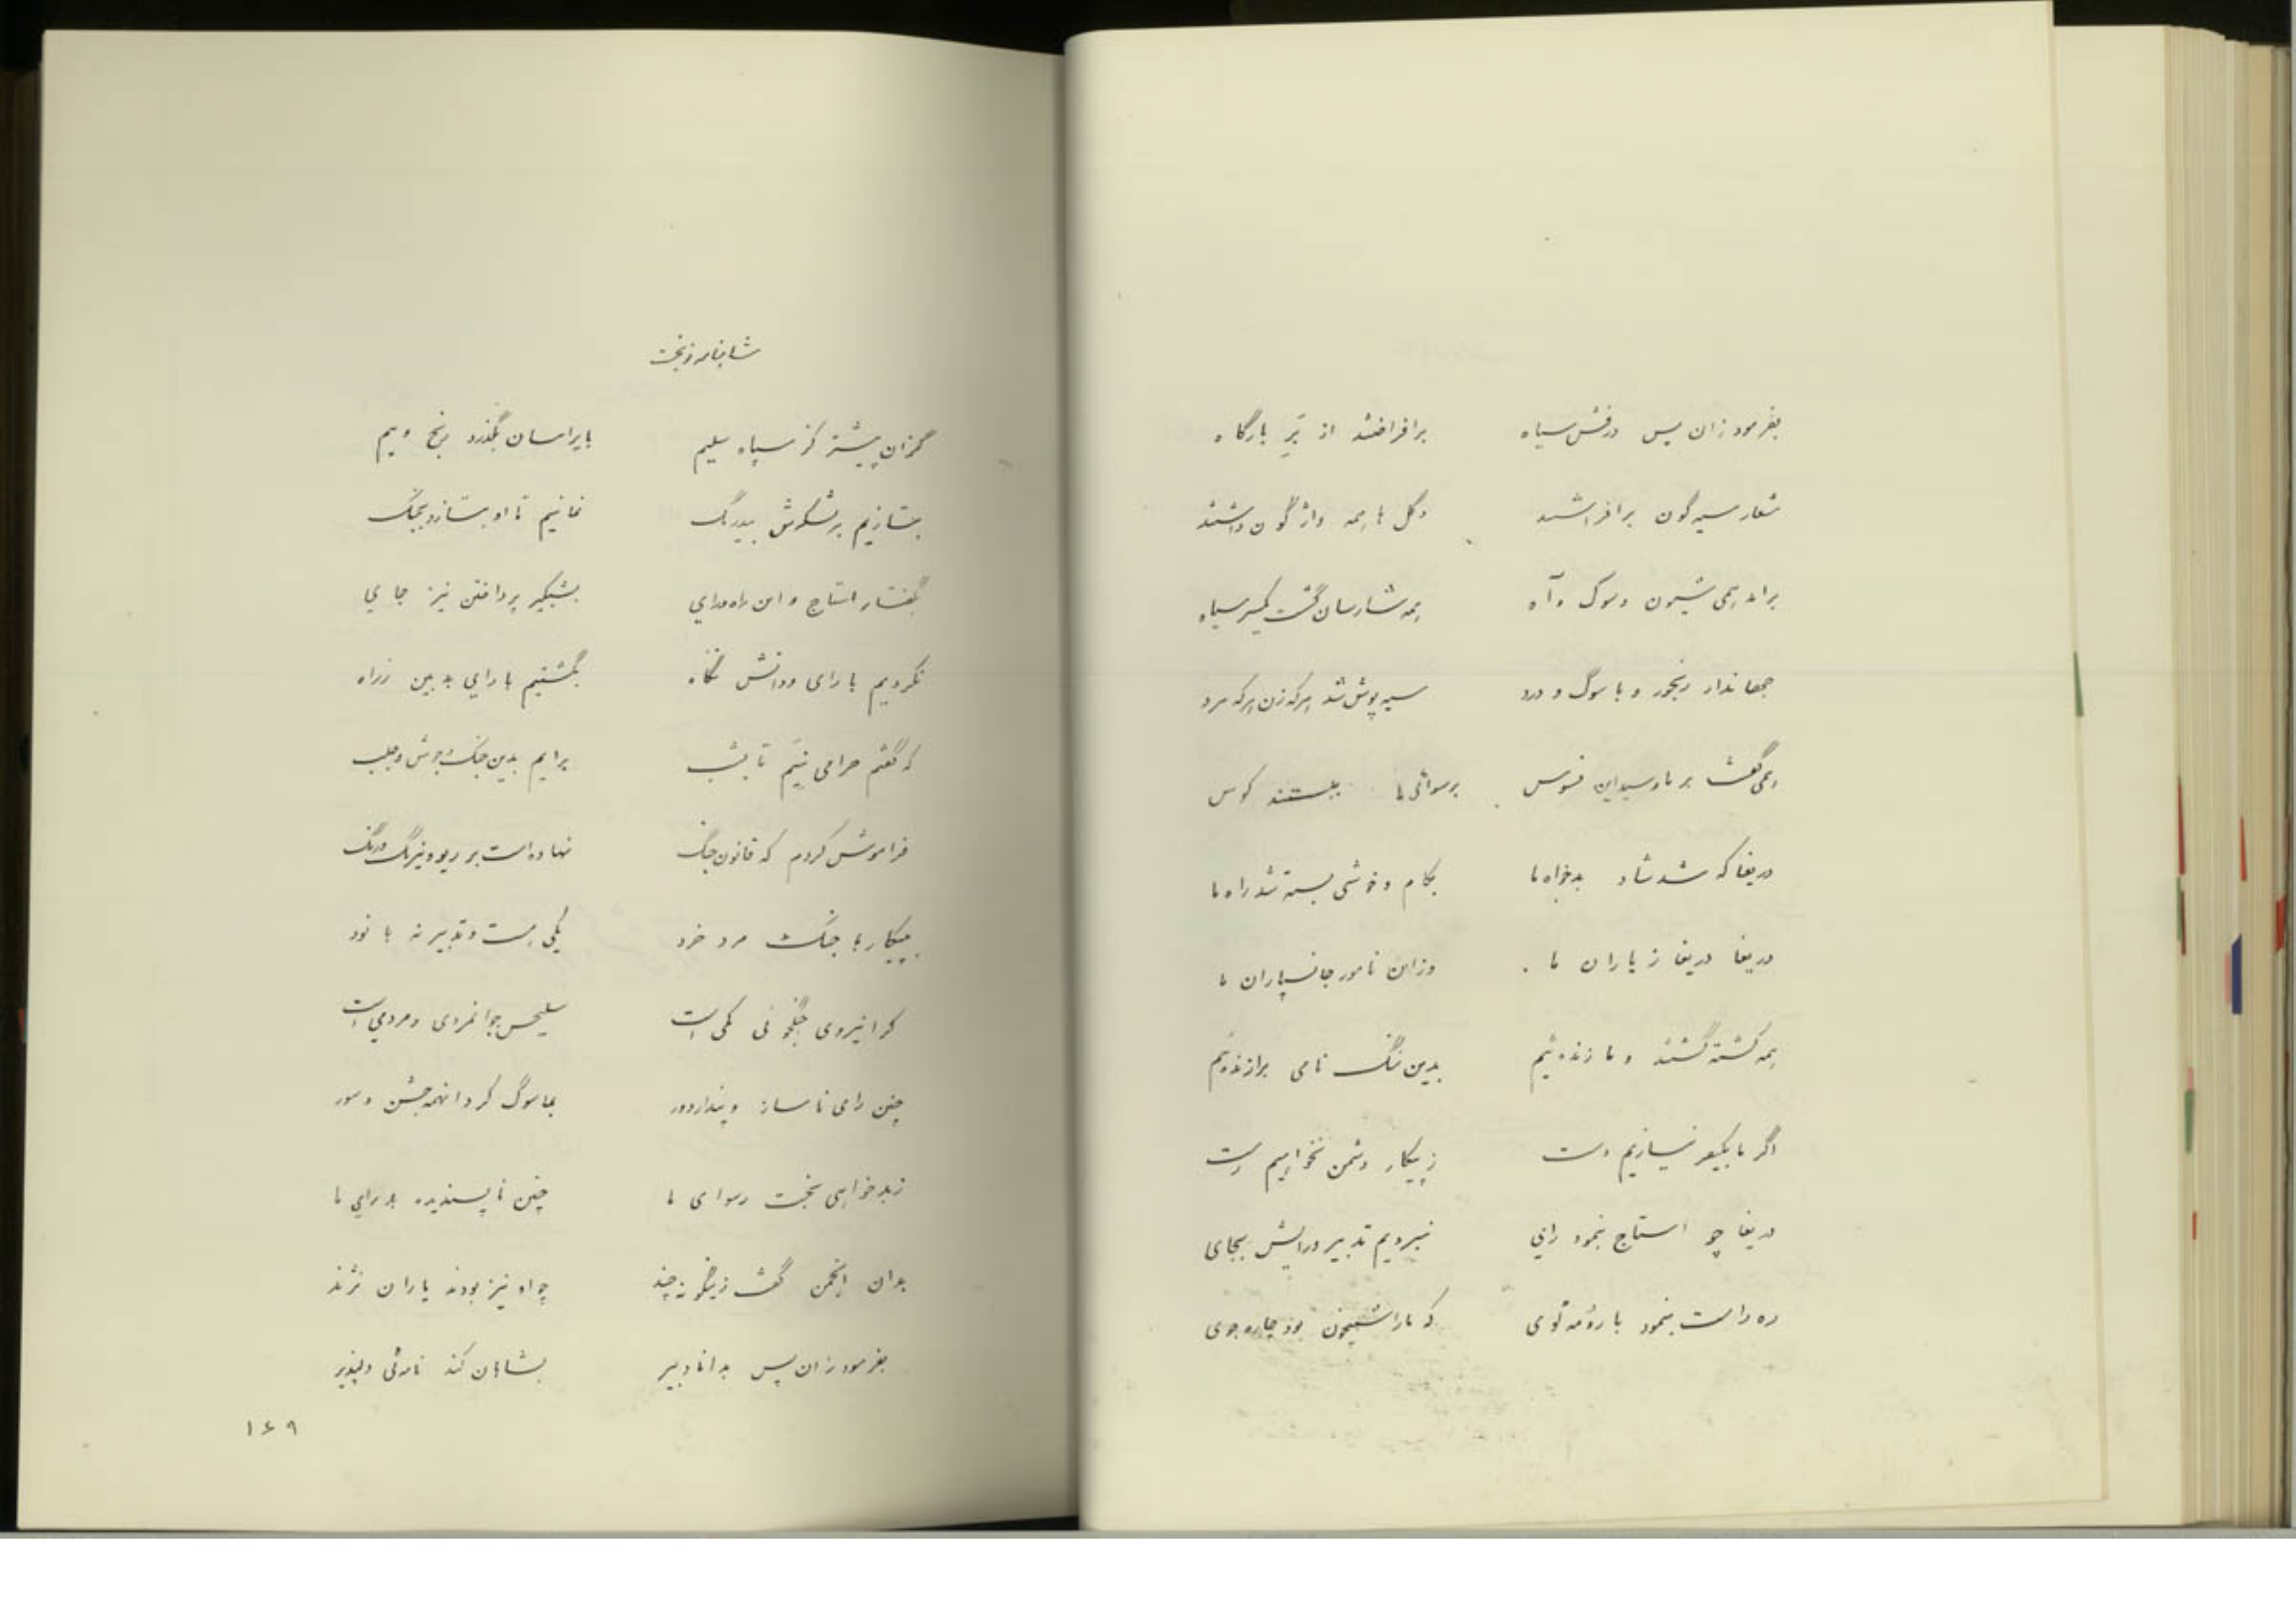 بفرمود زان پس درفش سیاه برافراختند از بر بارگاه
شعار سیه‌گون برافراشتند دکل‌ها همه واژگون داشتند
برآمد همی شیون و سوک و آه همه شارسان گشت یکسر سیاه
جهاندار رنجور و با سوگ و درد سیه‌پوش شد هرکه زن هرکه مرد
همی گفت بر ما رسید این فسوس برسوائی ما ببستند کوس
دریغا که شد شاد بدخواه ما بکام و خوشی بسته شد راه ما
دریغا دریغا ز یاران ما وزان نامور جانسپاران ما
همه کشته گشتند و ما زنده‌ئیم بدین ننگ نامی برازنده‌ئیم
اگر ما بکیفر نیازیم دست ز پیکار دشمن نخواهیم رست
دریغا چو استاج بنمود رای نبردیم تدبیر و رایش بجای
ره راست بنمود با روی که ما را شبیخون بود چاره‌جوی
شاهنامه نوبخت
کز سپاه سلیم بایراسان بگذرد رنج و بیم
بتازیم بر لشکرش بیدرنگ نمانیم تا او بتازد بجنگ
بگفتار استاج و این راه و رای بشبگیر پرداختن نیز جای
نکردیم با رای و دانش نگاه بگشتیم با رای بدبین ز راه
که گفتم حرامی نیم تا بشب برآیم بدین جنگ و جوش و جلب
فراموش کردم که قانون جنگ نهاده است بر ریو و نیرنگ و رنگ
به پیکار با جنگ مرد خرد یکی هست و تدبیر نه با نود
کرا نیروی جنگجوئی کمی است سلیحش جوانمردی و مردمی است
چنین رای ناساز و پندار دور بما سوگ کرد آنهمه جشن و سور
ز بدخواهی بخت رسوای ما چنین ناپسندیده بد رای ما
بدان انجمن گفت زینگونه چند چو او نیز بودند یاران نژند
بفرمود زان پس به دانا دبیر بشاهان کند نامه‌ئی دلپذیر
۱۶۹